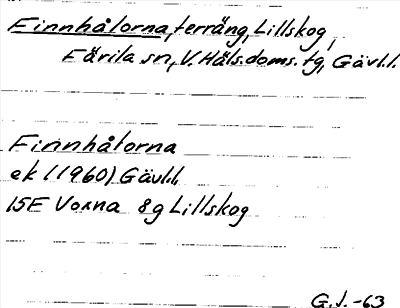 Finnhålorna, terräng, Lillskog,
Färila sn, V. Häls. doms. tg, Gävl.l.
Finnhålorna
ek (1960) Gävl.l.
15E Voxna 8g Lillskog
G.J. -63